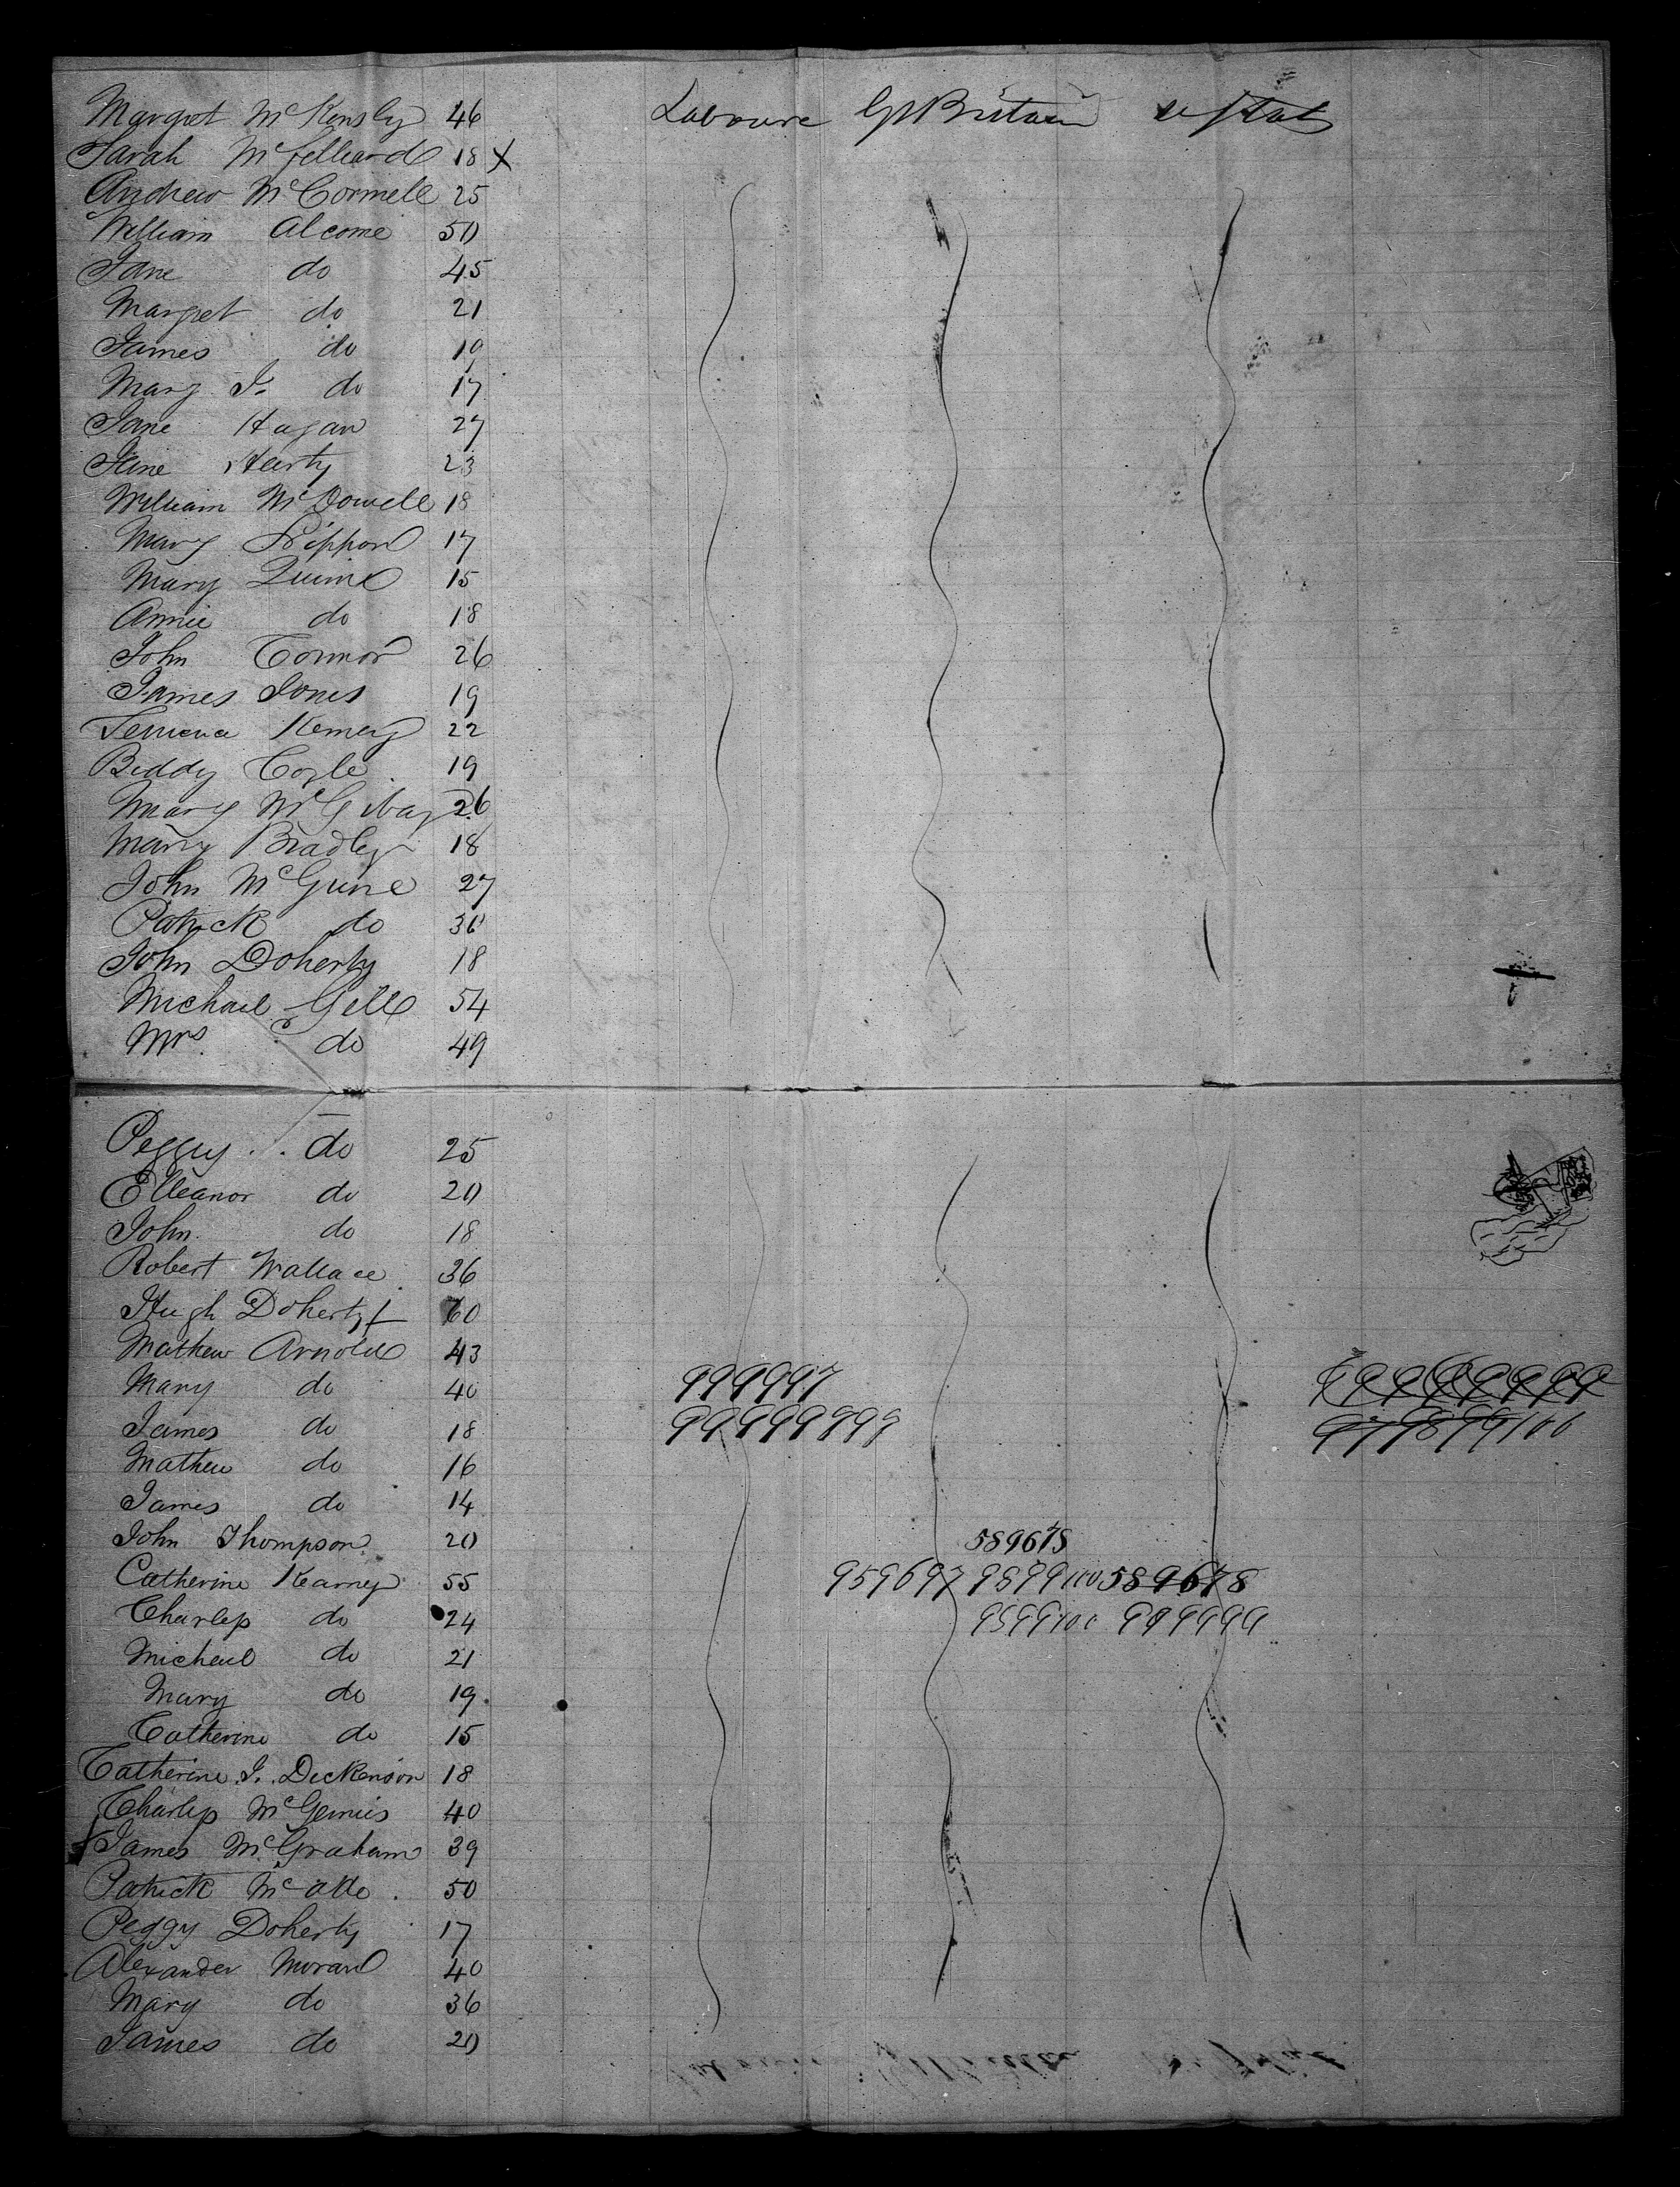 Margret McKensly 46 Laboure Gt Britain u Stat
Sarah 18 X
Andrew McCormell 25
William Alcome 50
Jane do 45
Margret do 21
James do 19
Mary J. do 17
Jane Hagan 27
Jane Harty 23
William McDowell 18
Mary 17
Mary Quinn 15
Annie do 18
John Connor 26
James Jones 19
22
Biddy Coyle 19
Mary 26
Mary Bradley 18
John McGuire 27
Patrick do 30
John Doherty 18
Michael Gill 54
Mrs do 49
Peggy do 25
Elleanor do 20
John do 18
Robert Wallace 36
Hugh Doherty 60
Mathew Arnold 43
Mary do 40 999997
James do 18 99999999
Mathew do 16
James do 14
John Thompson 20 589678
Catherine Kearney 55 959697 9899100 589678
Charles do 24 9599100 999999
Micheal do 21
Mary do 19
Catherine do 15
Catherine J. Dickenson 18
Charles McGennis 40
James McGraham 39
Patrick 50
Peggy Doherty 17
Alexander Moran 40
Mary do 36
James do 20